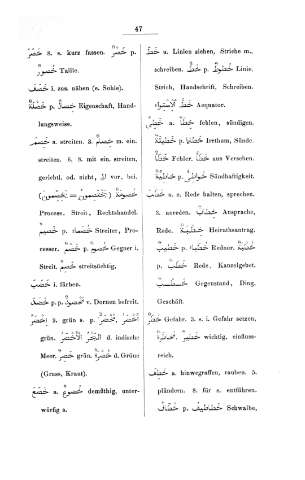 47
خَصَرَ 8. s. kurz fassen. خَصْر p.
خُصُورٌ Tallie.
خَصَفَ i. zus. nähen (e. Sohle).
خَصْلَةٌ p. خِصَالٌ Eigenschaft, Hand-
langsweise.
خَصَمَ a. streiten. 3. خَاصَمَ m. ein.
streiten. 6. 8. mit ein. streiten,
geziehl. od. nicht,
خُصُومَةٌ
Process, Streit, Rechtshandel.
خَصِيمٌ p. خُصَمَاء Streiter, Pro-
cesser. خَصْمٌ p. خُصُومٌ Gegner i.
Streit. streitsüchtig,
خَضَبَ i. färben.
v. Dornen befreit.
grün s. p.
grün. البَحْرُ الأَخْضَرُ d. indische
Meer. d. Grüne
(Grass, Kraut).
خَضَعَ a. خُضُوعٌ demüthig, unter-
würfig s.
خَطَّ u. Linien ziehen, Striche m.,
schreiben. خَطٌّ p. خُطُوطٌ Linie,
Strich, Handschrift, Schreiben.
خَطُّ الاِسْتِوَاء Aequator.
خَطِئَ a. Fehler, sündigen.
خَطِيئَةٌ p. خَطَايَا Irrtham, Sünde.
خَطَأٌ Fehler. خَطَأً Aus Versehen.
Sündhaftigkeit.
خَطَبَ u. e. Rede halten, sprechen.
3. anreden. خِطَابٌ Ansprache,
Rede. Heirathsantrag.
خَطِيبٌ p. خُطَبَاء Redner. خُطْبَةٌ
p. خُطَبٌ Rede, Kanzelgebet.
خَطْبٌ Gegenstand, Ding,
Geschäft.
خَطَرٌ Gefahr. 3. s. i. Gefahr setzen,
wichtig, einfluss-
reich.
خَطِفَ a. hinwegraffen, rauben. 5.
plündern. 8. für s. entführen.
خُطَّافٌ p. خَطَاطِيف Schwalbe,